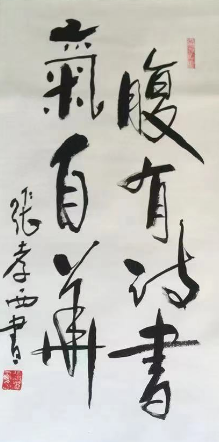 腹有诗書
氣自華
張孝西書